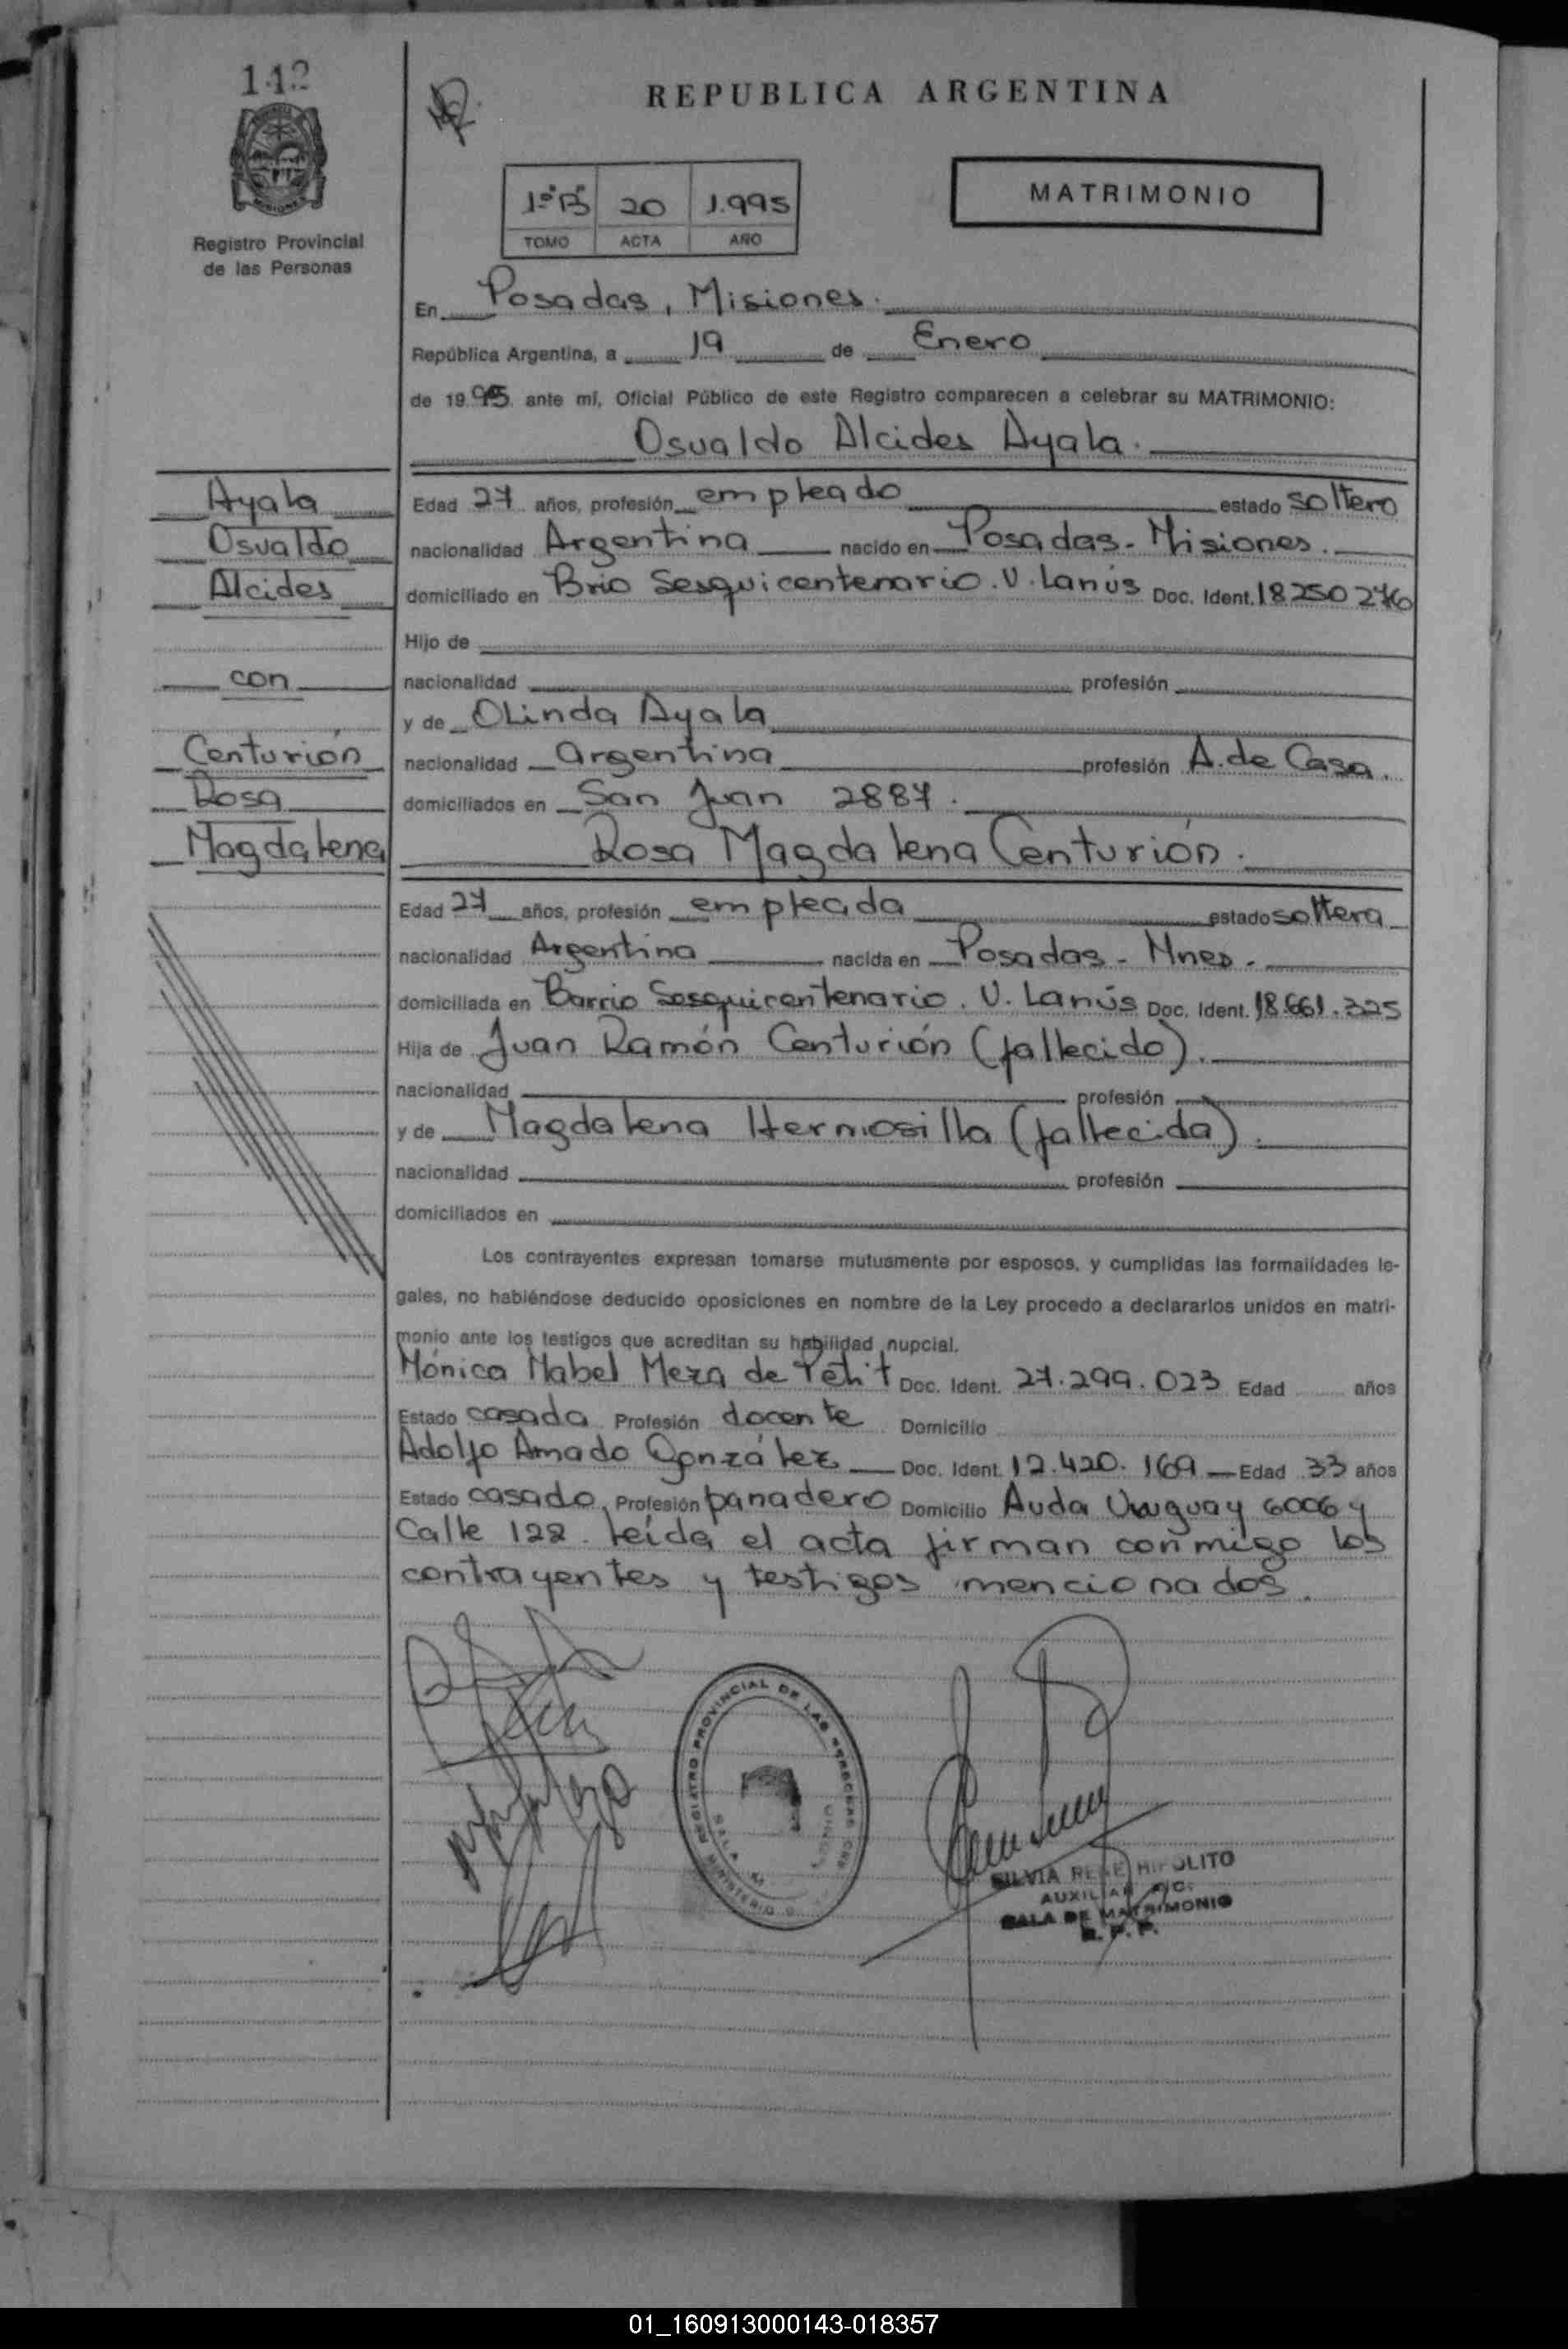 142
REPUBLICA ARGENTINA
MATRIMONIO
1º B 20 1.995
TOMO ACTA AÑO
Registro Provincial
de las Personas
En Posadas, Misiones.
República Argentina, a 19 de Enero
de 1995 ante mí, Oficial Público de este Registro comparecen a celebrar su MATRIMONIO:
Osvaldo Alcides Ayala.
Ayala
Osvaldo
Alcides
con
Centurión
Rosa
Magdalena
Edad 27 años, profesión empleado estado soltero
nacionalidad Argentina nacido en Posadas - Misiones.
domiciliado en Brio Sesquicentenario. V. Lanús Doc. Ident. 18250276
Hijo de
nacionalidad profesión
y de Olinda Ayala
nacionalidad argentina profesión A. de Casa.
domiciliados en San Juan 2887.
Rosa Magdalena Centurión.
Edad 27 años, profesión empleada estado soltera
nacionalidad Argentina nacida en Posadas - Mnes.
domiciliada en Barrio Sesquicentenario. V. Lanús Doc. Ident. 18.661.325
Hija de Juan Ramón Centurión (fallecido).
nacionalidad profesión
y de Magdalena Hermosilla (fallecida).
nacionalidad profesión
domiciliados en
Los contrayentes expresan tomarse mutuamente por esposos, y cumplidas las formalidades le-
gales, no habiéndose deducido oposiciones en nombre de la Ley procedo a declararlos unidos en matri-
monio ante los testigos que acreditan su habilidad nupcial.
Mónica Mabel Meza de Petit Doc. Ident. 27.299.023 Edad años
Estado casada Profesión docente Domicilio
Adolfo Amado González Doc. Ident. 12.420.169 Edad 33 años
Estado casado, Profesión panadero Domicilio Avda Uruguay 6006 y
Calle 122. Leída el acta firman conmigo los
contrayentes y testigos mencionados.
REGISTRO PROVINCIAL DE LAS PERSONAS
MINISTERIO
SALA
SILVIA RENE HIPOLITO
AUXILIAR
SALA DE MATRIMONIO
R. P. P.
01_160913000143-018357